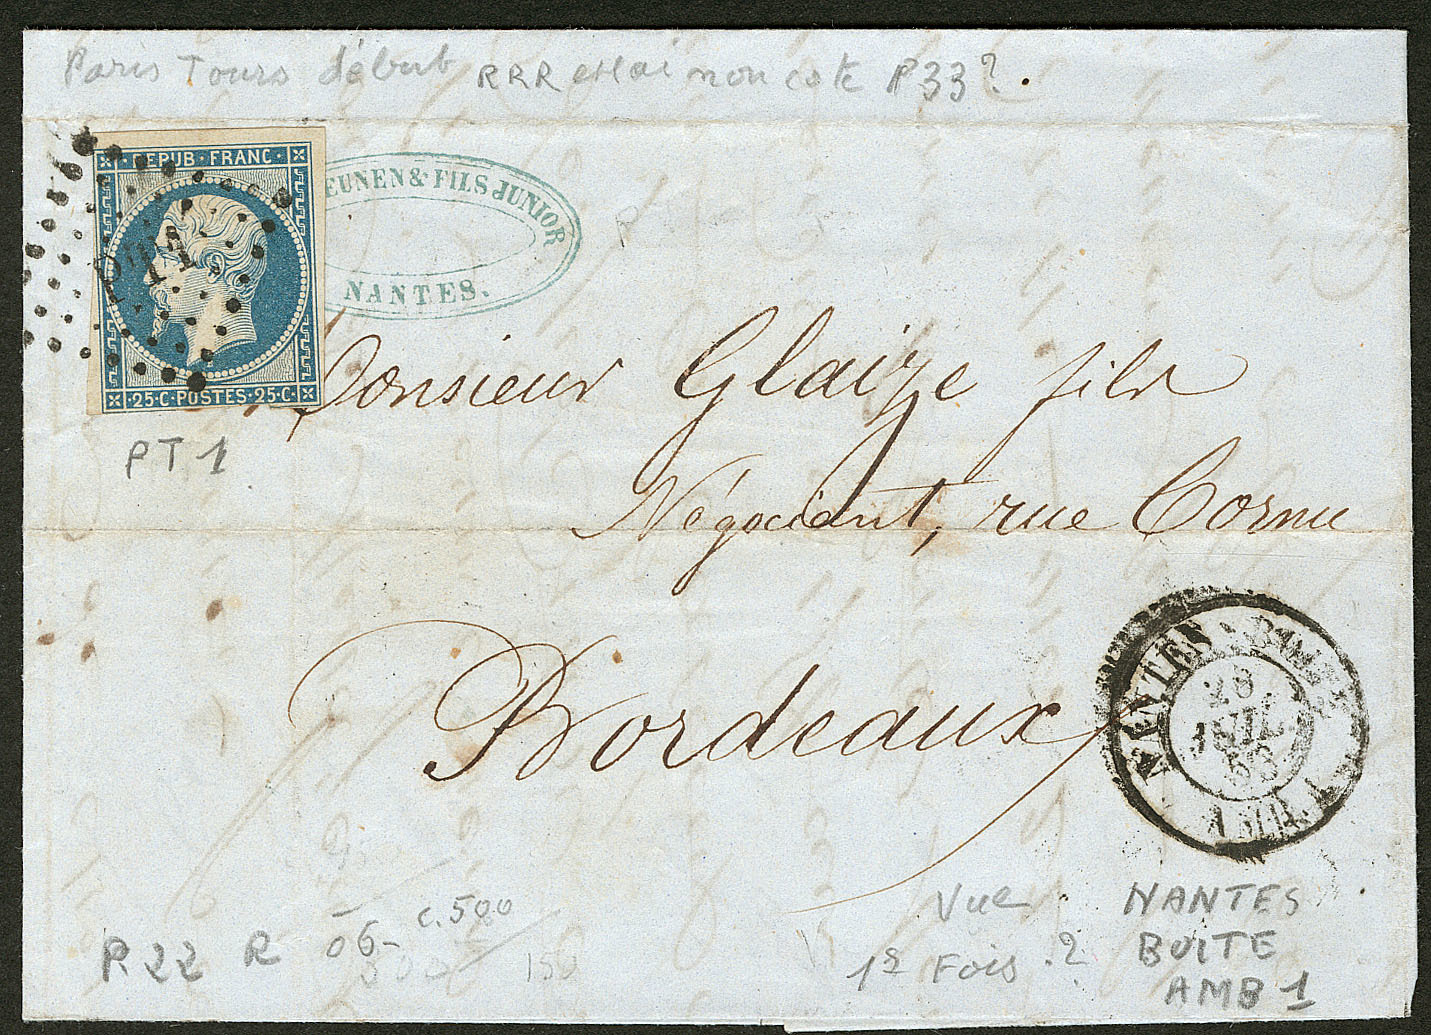 Paris Tours début RRR essai non coté P33?.
REPUB·FRANC·
PT1
·25·C·POSTES·25·C·
EUNEN & FILS JUNIOR
NANTES.
PT1
Monsieur Glaize fils
Négociant, rue Cornu
Bordeaux
NANTES
28
JUIL.
53
P22 R 06- c.500
300 150
Vue
1e Fois ?
NANTES
BOITE
AMB 1